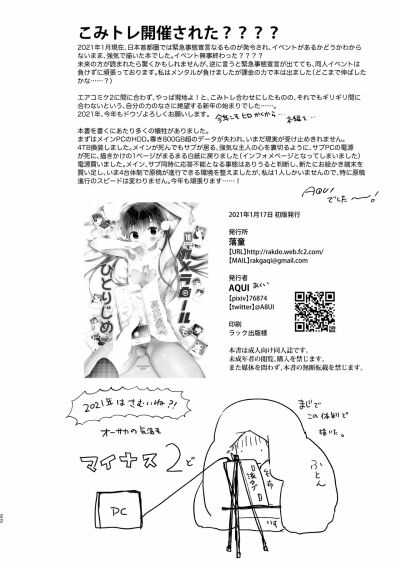 こみトレ開催された？？？？
2021年1月現在、日本首都圏では緊急事態宣言なるものが発令され、イベントがあるかどうかわから
ないまま、強気で描いた本でした。イベント無事終わった？？？？
未来の方が読まれたら驚くかもしれませんが、逆に言うと緊急事態宣言が出てても、同人イベントは
負けずに頑張っております。私はメンタルが負けましたが課金の力で本は出ました(どこまで伸ばした
かな……？)
エアコミケ2に間に合わず、やっぱ現地よ！と、こみトレ合わせにしたものの、それでもギリギリ間に
合わないという、自分の力のなさに絶望する新年の始まりでした……。
2021年、今年もドウゾよろしくお願いします。
本書を書くにあたり多くの犠牲がありました。
まずはメインPCのHDD。尊き800GB超のデータが失われ、いまだ現実が受け止めきれません。
4TB換装しました。メインが死んでもサブが居る、強気な主人の心を裏切るように、サブPCの電源
が死に、描きかけの1ページがまるまる白紙に戻りました(インフォメページとなってしまいました)
電源買いました。メイン、サブ同時に応答不能となる事態はありうると判断し、新たにお絵かき端末を
買い足し、いま4台体制で原稿が進行できる環境を整えましたが、私は1人しかいませんので、特に原稿
進行のスピードは変わりません。今年も頑張ります……！
AQUI
でした〜！
ガメラロール
ひとりじめ
2021年1月17日 初版発行
発行所
落童
【URL】http://rakdo.web.fc2.com/
【MAIL】rakgaqi@gmail.com
発行者
AQUI あくい
【pixiv】76874
【twitter】@A8UI
印刷
ラック出版様
本書は成人向け同人誌です。
未成年者の閲覧、購入を禁じます。
また媒体を問わず、本書の無断転載を禁じます。
2021年はさむいね?!
オーサカの気温も
マイナス2ど
まじで
この体制で
描いた。
ふとん
PC
いす
22